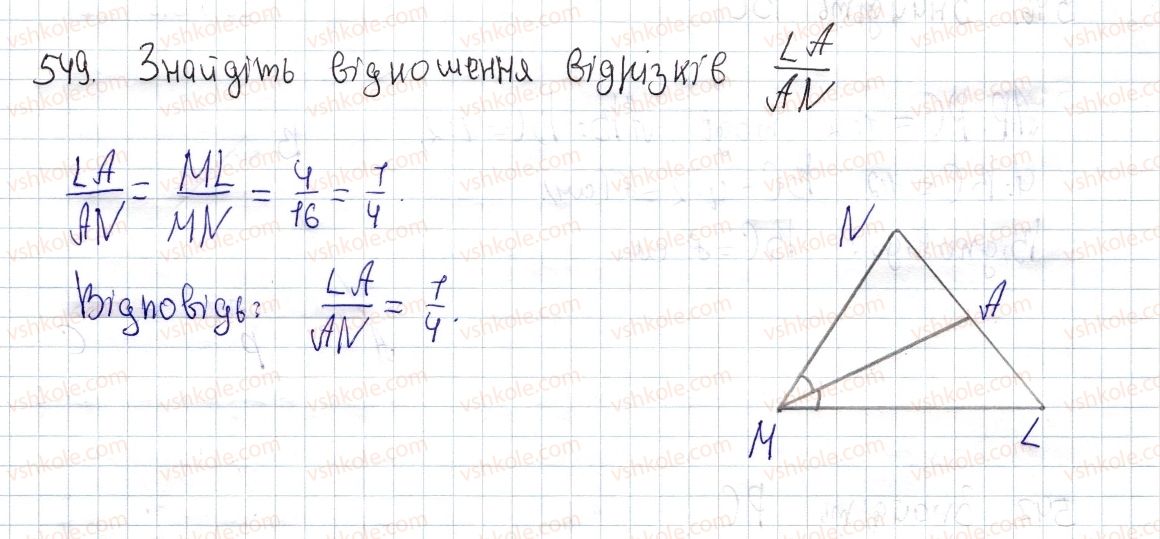 549. Знайдіть відношення відрізків LA/AN
LA/AN = ML/MN = 4/16 = 1/4.
Відповідь: LA/AN = 1/4.
N
A
M
L
vshkole.com